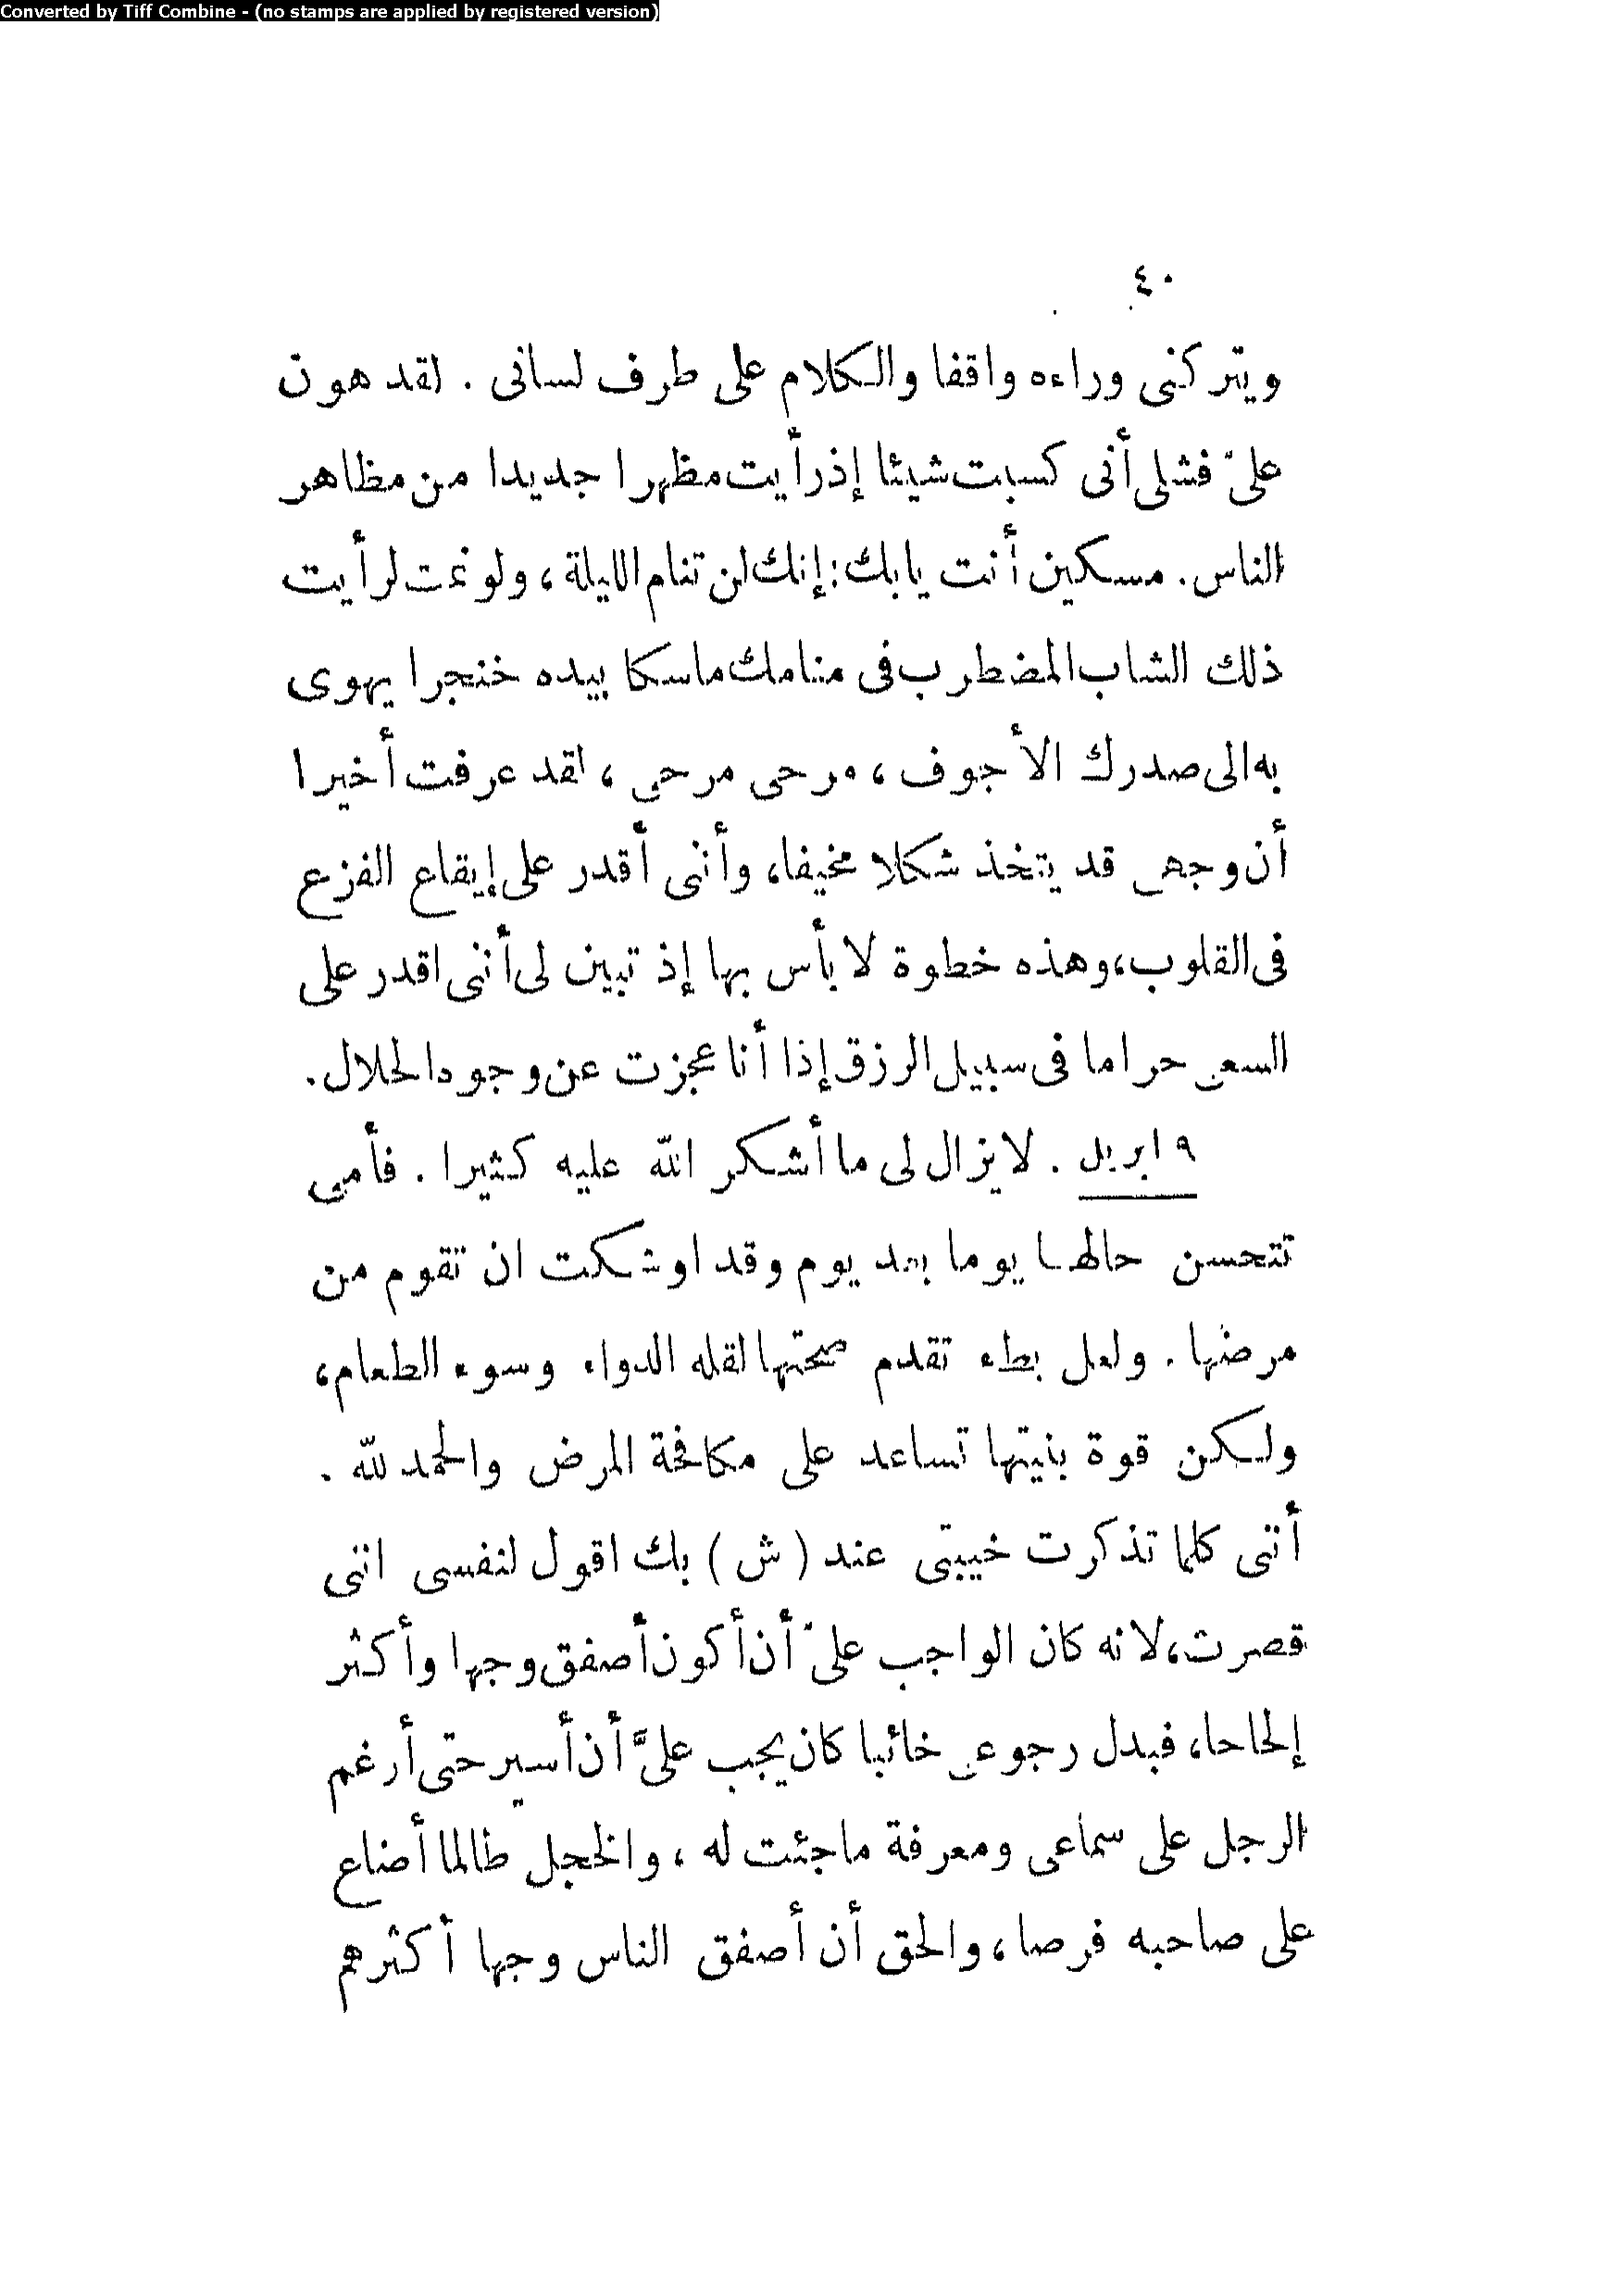 Converted by Tiff Combine - (no stamps are applied by registered version)
٤٠
ويتركنى وراءه واقفا والكلام على طرف لسانى . لقد هون
علىّ فشلى أنى كسبت شيئا إذ رأيت مظهرا جديدا من مظاهر
الناس . مسكين أنت يا بك : إنك لن تنام الليلة ، ولو نمت لرأيت
ذلك الشاب المضطرب فى منامك ماسكا بيده خنجرا يهوى
به الى صدرك الأجوف ، مرحى مرحى ، لقد عرفت أخيرا
أن وجهى قد يتخذ شكلا مخيفا، وأنى أقدر على إيقاع الفزع
فى القلوب، وهذه خطوة لا بأس بها إذ تبين لى أننى اقدر على
السعى حراما فى سبيل الرزق إذا أنا عجزت عن وجود الحلال .
٩ ابريل . لا يزال لى ما أشكر الله عليه كثيرا . فأمى
تتحسن حالها يوما بعد يوم وقد اوشكت ان تقوم من
مرضها . ولعل بطء تقدم صحتها لقله الدواء وسوء الطعام ،
ولكن قوة بنيتها تساعد على مكافحة المرض والحمد لله .
أننى كلما تذكرت خيبتى عند ( ش ) بك اقول لنفسى اننى
قصرت، لانه كان الواجب علىّ أن أكون أصفق وجها وأكثر
إلحاحا، فبدل رجوعى خائبا كان يجب علىَّ أن أسير حتى أرغم
الرجل على سماعى ومعرفة ما جئت له ، والخجل طالما أضاع
على صاحبه فرصا ، والحق أن أصفق الناس وجها أكثرهم